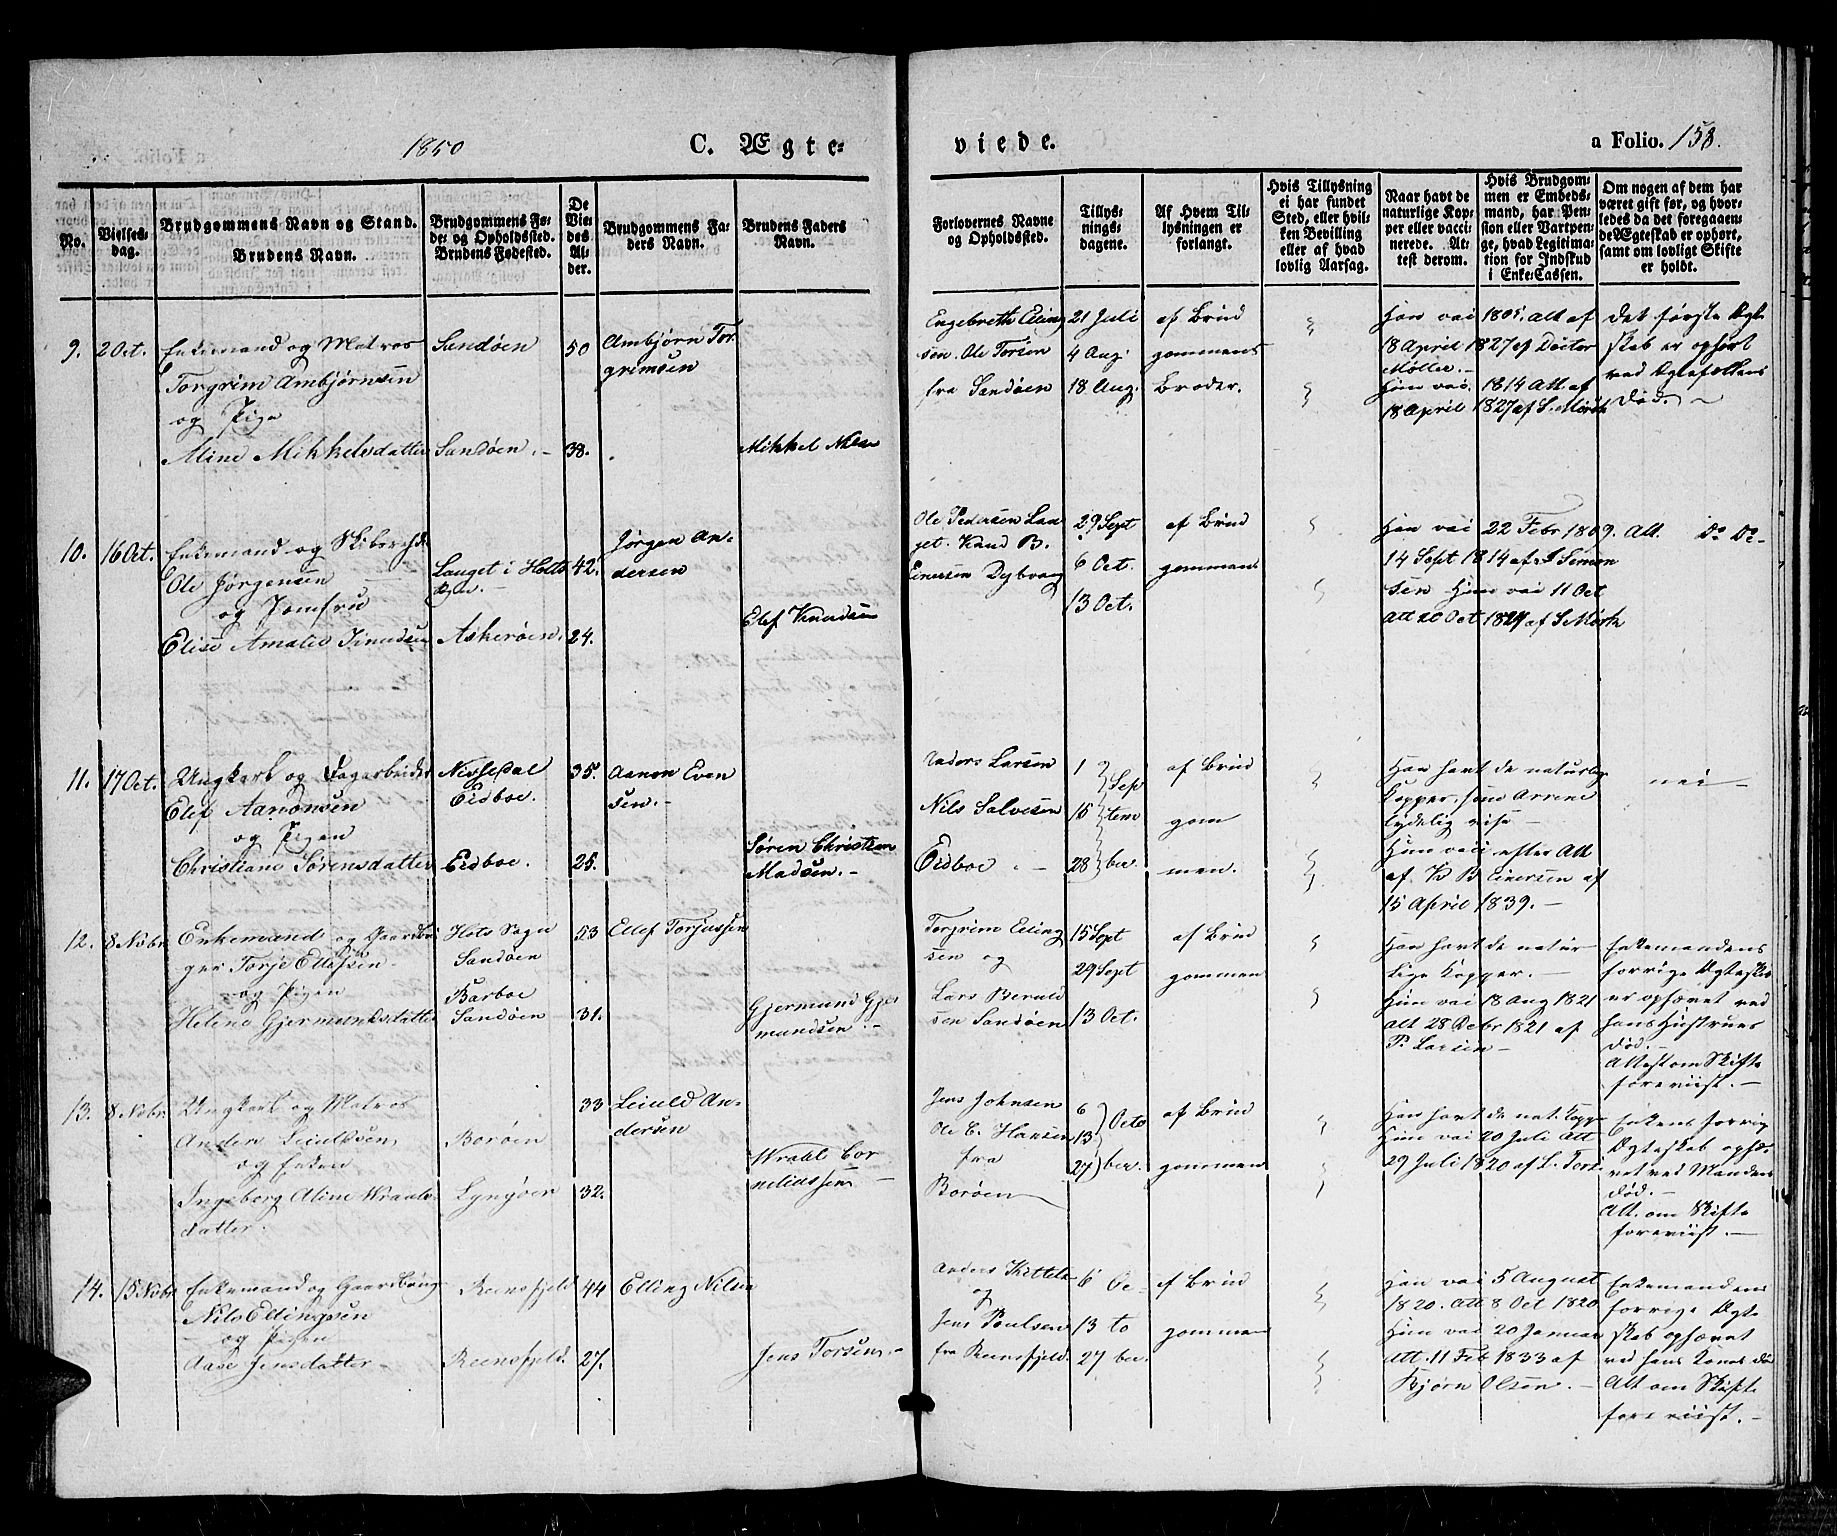 1850 C. Ægte-
viede. a Folio. 158.
No.
Vielses-
dag.
Brudgommens Navn og Stand.
Brudens Navn.
Brudgommens Fø-
de- og Opholdssted.
Brudens Fødested.
De
Vie-
des
Al-
der.
Brudgommens Fa-
ders Navn.
Brudens Faders
Navn.
Forlovernes Navne
og Opholdssted.
Tillys-
nings-
dagene.
Af Hvem Til-
lysningen er
forlangt.
Hvis Tillysning
ei har fundet
Sted, eller hvil-
ken Bevilling
eller af hvad
lovlig Aarsag.
Naar havt de
naturlige Kop-
per eller vacci-
nerede. At-
test derom.
Hvis Brudgom-
men er Embeds-
mand, har Pen-
sion eller Vartpen-
ge, hvad Legitima-
tion for Indskud
i Enke-Cassen.
Om nogen af dem har
været gift før, og hvor-
ledes da det foregaaen-
de Ægteskab er ophørt,
samt om lovligt Skifte
er holdt.
9. 2 Oct. Enkemand og Matros
Torgrim Ambjørnsen
og Pige
Aline Mikkelsdatter
Sandøen
Sandøen. -
50
38.
Ambjørn Tor
grimsen
Mikkel Nilsen
Engebreth Elling
sen. Ole Torsen
fra Sandøen
21 Juli
4 Aug.
18 Aug.
af Brud
gommens
Broder.
Han vac 1805. Att af
18 April 1827 af Doctor
Møller. -
Hun vac. 1814 Att af
18 April 1827 af S. Mørch
Det første Ægte
skab er ophørt
ved Ægtefællens
Død. -
10. 16 Oct. Enkemand og
Ole Jørgensen
og Jomfru
Elise Amalie Knudsen
Lauget i Holts
Sogn. -
Askerøen.
42.
24.
Jørgen An-
dersen
Elef Knudsen
Ole Pedersen Lau
get. Knud B.
Einersen Dybvaag
29 Sept
6 Oct.
13 Oct.
af Brud
gommens
Han vac 22 Febr 1809. Att.
14 Sept 1814 af Simon
sen Hun vac 11 Oct
Att 20 Oct 1827 af S. Mørch
Do Do
11. 17 Oct. Ungkarl og Dagarbeider
Elef Aanonsen
og Pigen
Christiane Sørensdatter
Eidboe.
Eidboe.
35.
25.
Aanon Even
sen. -
Søren Christian
Madsen. -
Anders Larsen
Nils Salvesen
Eidboe. -
1 Sep
15 tem
28 ber.
af Brud
gom
men.
Han havt de naturlige
Kopper, som Arrene
tydelig vise
Hun vac efter Att
af K B Einersen af
15 April 1839. -
nei -
12. 8 Novbr. Enkemand og Gaardbru
ger Torje Ellefsen.
og Pigen
Helene Gjermundsdatter
Holts Sogn
Sandøen
Barboe
Sandøen
53
31.
Ellef Torjussen
Gjermund Gjer
mundsen. -
Torgrim Elling
sen og
Lars Berulf
sen Sandøen
15 Sept
29 Sept
13 Oct.
af Brud
gommen
Han havt de natur
lige Kopper. -
Hun vac 18 Aug 1821
Att 28 Debr 1821 af
P. Larsen -
Enkemandens
forrige Ægteskab
er ophævet ved
hans Hustrues
Død. -
Attest om Skifte
foreviist. -
13. 8 Novbr. Ungkarl og Matros
Anders Leiulfsen
og Enken
Ingeborg Aline Wraals-
datter.
Borøen
Lyngøer
33
32.
Leiulf An-
dersen
Wraal Cor
neliussen
Jens Johnsen
Ole C. Hansen
fra
Borøen
6
13
27
Octo
ber.
af Brud
gommen
Han havt de nat. Kopp
Hun vac 20 Juli Att
29 Juli 1820 af L. Tors.
Enkens forrige
Ægteskab ophæ-
vet ved Mandens
Død. -
Att. om Skifte
foreviist. -
14. 15 Novbr. Enkemand og Gaardbrug
Nils Ellingsen
og Pigen
Aase Jensdatter -
Reensfjeld
Reensfjeld.
44
27.
Elling Nilsen
Jens Torsen. -
Anders Kittels
og
Jens Poulsen
fra Reensfjeld.
6 Oc-
13 to
27 ber.
af Brud
gommen
Han vac 5 August
1820. Att 8 Oct 1820
Hun vac 20 Januar
Att. 11 Feb 1833 af
Bjørn Olsen. -
Enkemandens
forrige Ægte
skab ophævet
ved hans Kones Død
Att om Skifte
foreviist. -